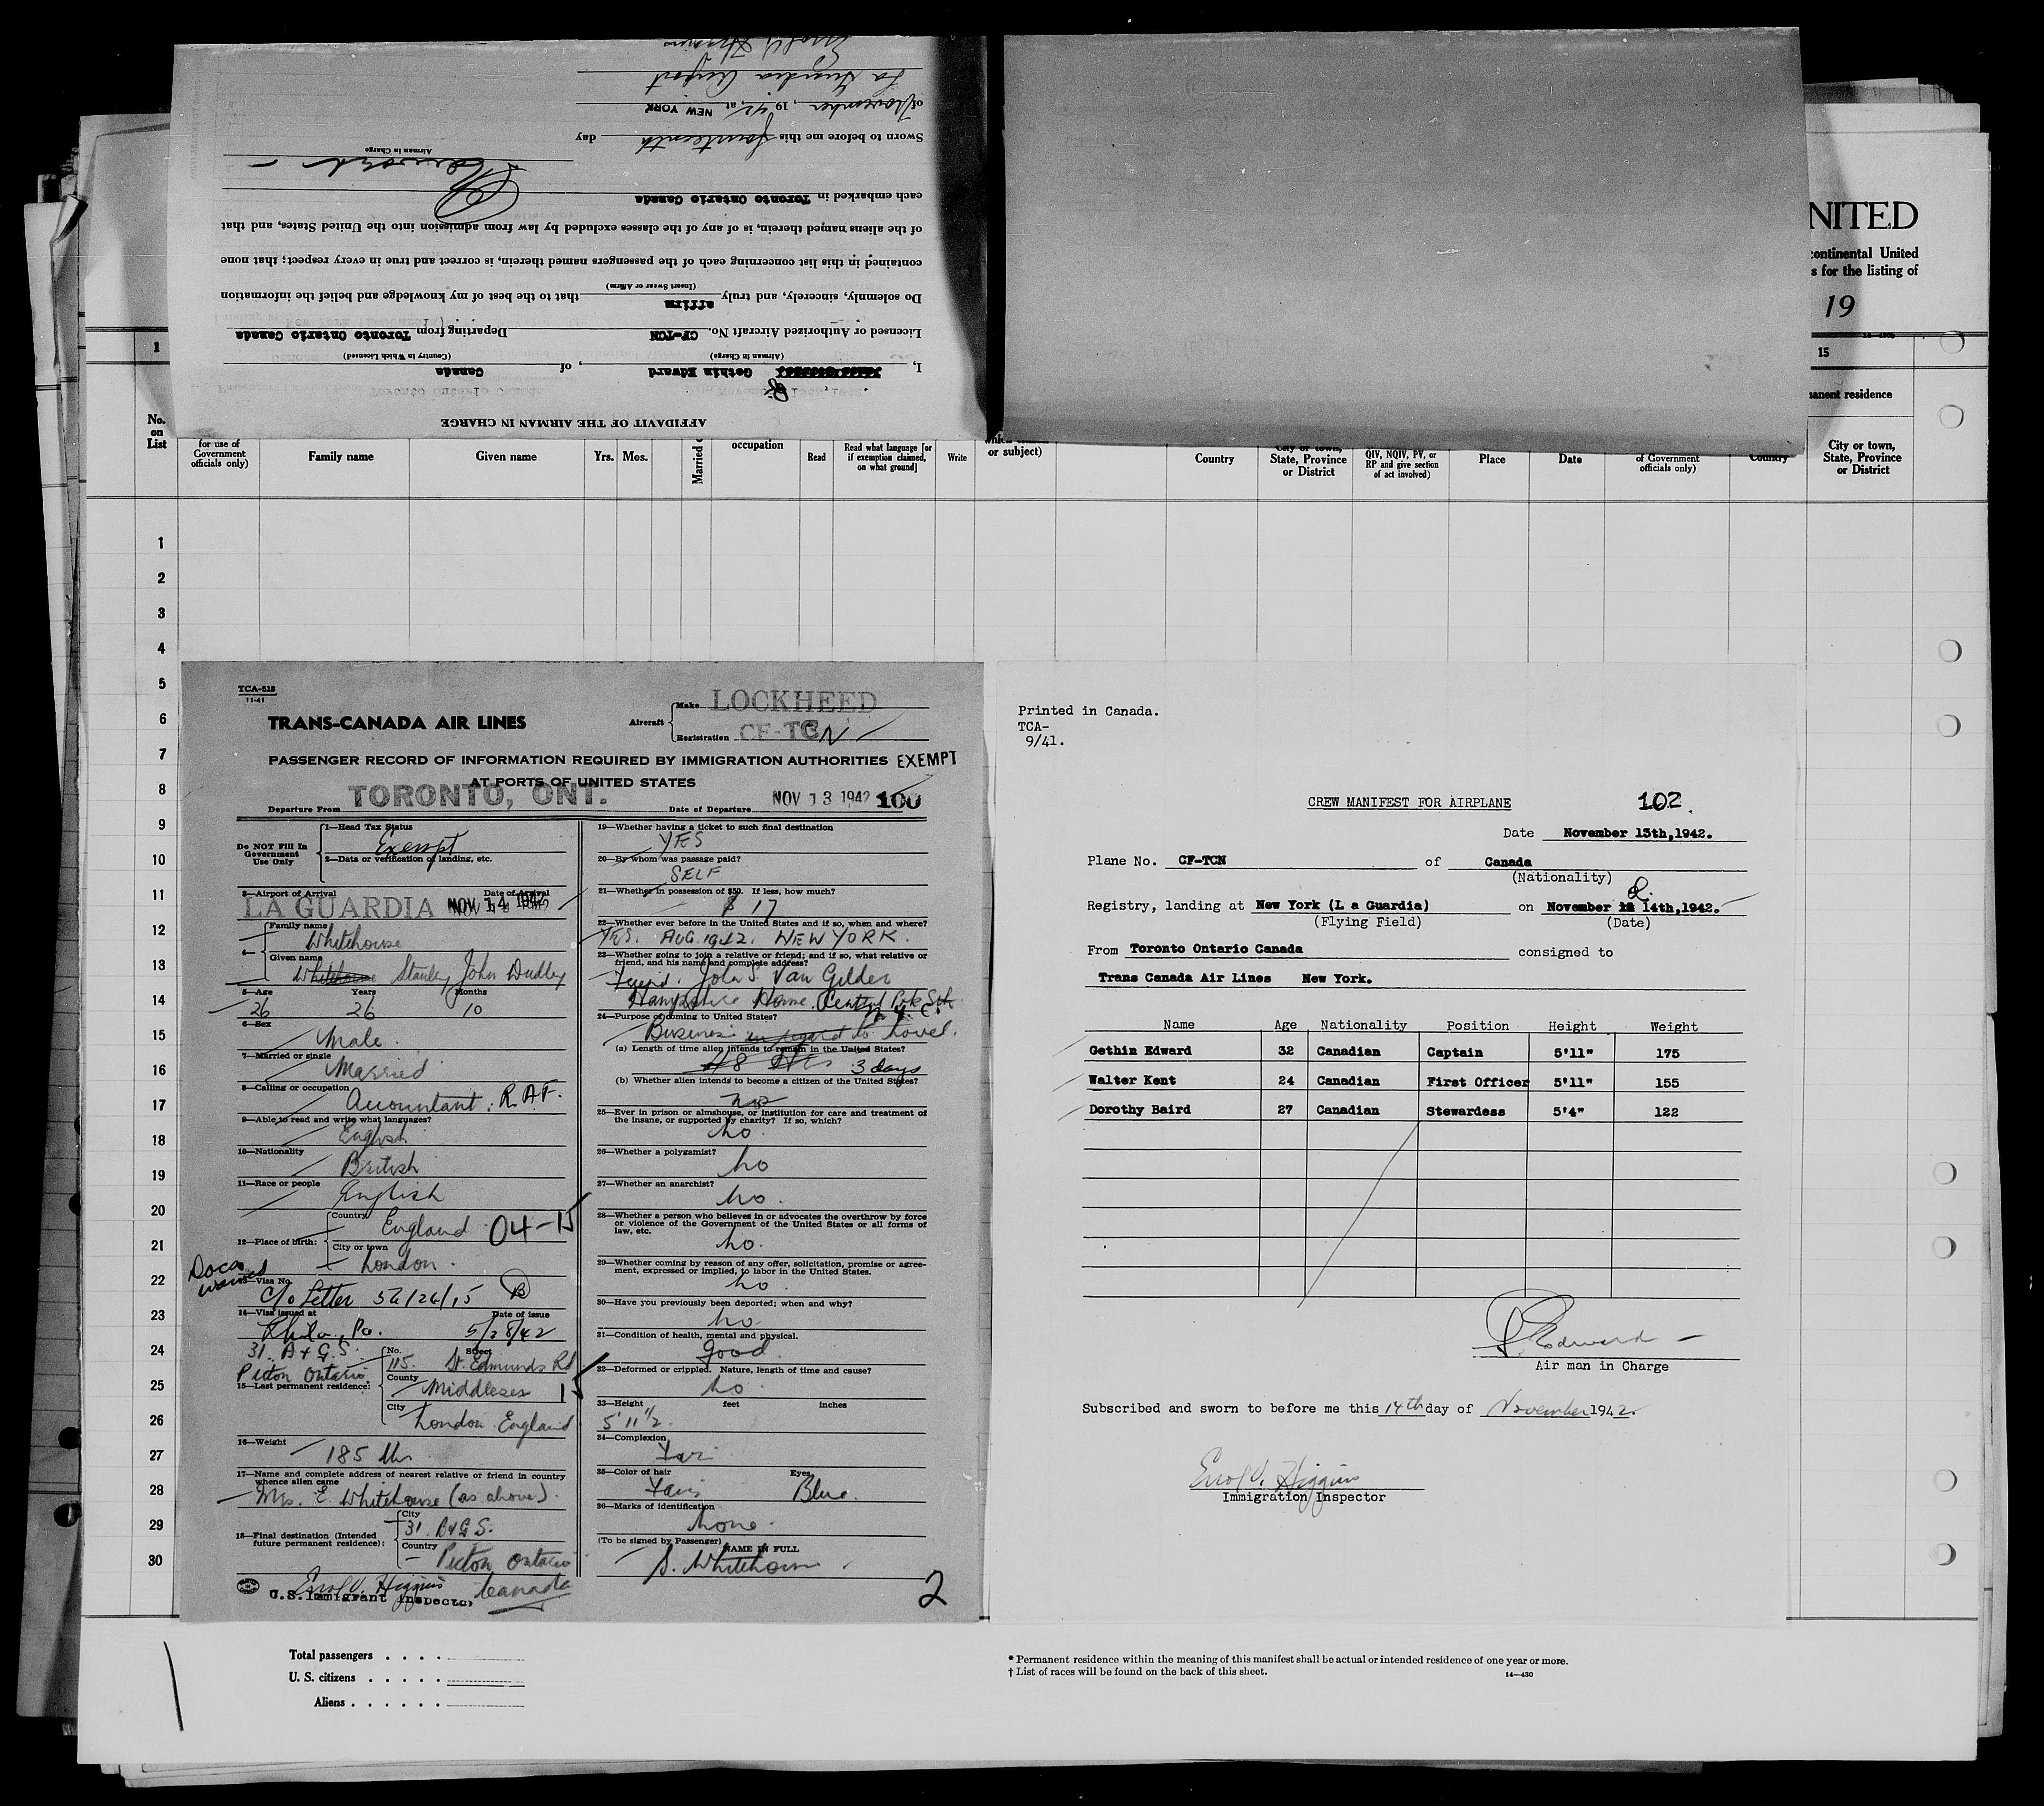 AFFIDAVIT OF THE AIRMAN IN CHARGE
I, Gethin Edward, of Canada
(Airman in Charge) (Country in Which Licensed)
Licensed or Authorized Aircraft No. CF-TCN Departing from Toronto Ontario Canada
Do solemnly, sincerely, and truly affirm that to the best of my knowledge and belief the information
(Insert Swear or Affirm)
contained in this list concerning each of the passengers named therein, is correct and true in every respect; that none
of the aliens named therein, is of any of the classes excluded by law from admission into the United States, and that
each embarked in Toronto Ontario Canada
Edward
Airman in Charge
Sworn to before me this fourteenth day
of November, 1942, at NEW YORK
La Guardia Airport
NITED
continental United
s for the listing of
19
1
15
manent residence
No. on List
for use of Government officials only)
Family name
Given name
Yrs.
Mos.
Married o
occupation
Read
Read what language [or if exemption claimed, on what ground]
Write
or subject)
Country
City or town, State, Province or District
QIV, NQIV, PV, or RP and give section of act involved)
Place
Date
of Government officials only)
Country
City or town, State, Province or District
1
2
3
4
5
6
7
8
9
10
11
12
13
14
15
16
17
18
19
20
21
22
23
24
25
26
27
28
29
30
TCA-518
11-41
TRANS-CANADA AIR LINES
Aircraft
Make LOCKHEED
Registration CF-TCN
PASSENGER RECORD OF INFORMATION REQUIRED BY IMMIGRATION AUTHORITIES EXEMPT
AT PORTS OF UNITED STATES
Departure From TORONTO, ONT. Date of Departure NOV 13 1942 100
Do NOT Fill In Government Use Only
1—Head Tax Status
Exempt
2—Data or verification of landing, etc.
3—Airport of Arrival Date of Arrival
LA GUARDIA NOV 14 1942
4—
Family name
Whitehouse
Given name
Whitehouse Stanley John Dudley
5—Age Years Months
26 26 10
6—Sex
Male.
7—Married or single
Married
8—Calling or occupation
Accountant. R.A.F.
9—Able to read and write what languages?
English
10—Nationality
British
11—Race or people
English
12—Place of birth:
Country
England 04-15
City or town
London.
Docs waived
13—Visa No.
C/o Letter 56/26/15 B
14—Visa issued at Date of issue
Phila., Pa. 5/28/42
31. B & G.S.
Picton Ontario.
15—Last permanent residence:
No. Street
115. St. Edmunds Rd
County
Middlesex 15
City
London England
16—Weight
185 lbs
17—Name and complete address of nearest relative or friend in country
whence alien came
Mrs. E. Whitehouse (as above).
18—Final destination (Intended future permanent residence):
City
31. B & G S.
Country
Picton Ontario
Canada
Errol V. Higgins
U.S. Immigrant Inspector
19—Whether having a ticket to such final destination
YES
20—By whom was passage paid?
SELF
21—Whether in possession of $50. If less, how much?
$17
22—Whether ever before in the United States and if so, when and where?
YES. AUG. 1942. NEW YORK.
23—Whether going to join a relative or friend; and if so, what relative or
friend, and his name and complete address?
Friend. John S. Van Gilder
Hampshire House. Central Prk Sth.
N.Y.C.
24—Purpose of coming to United States?
Business in regard to travel.
(a) Length of time alien intends to remain in the United States?
48 Hrs 3 days
(b) Whether alien intends to become a citizen of the United States?
no
25—Ever in prison or almshouse, or institution for care and treatment of
the insane, or supported by charity? If so, which?
no.
26—Whether a polygamist?
no
27—Whether an anarchist?
no.
28—Whether a person who believes in or advocates the overthrow by force
or violence of the Government of the United States or all forms of
law, etc.
no.
29—Whether coming by reason of any offer, solicitation, promise or agree-
ment, expressed or implied, to labor in the United States.
no
30—Have you previously been deported; when and why?
no
31—Condition of health, mental and physical.
good
32—Deformed or crippled. Nature, length of time and cause?
no.
33—Height feet inches
5' 11 1/2.
34—Complexion
Fair
35—Color of hair Eyes
Fair Blue.
36—Marks of identification
none.
(To be signed by Passenger) NAME IN FULL
S. Whitehouse
2
Printed in Canada.
TCA-
9/41.
CREW MANIFEST FOR AIRPLANE 102.
Date November 13th,1942.
Plane No. CF-TCN of Canada
(Nationality)
Registry, landing at New York (L a Guardia) on November 14th,1942.
(Flying Field) (Date)
From Toronto Ontario Canada consigned to
Trans Canada Air Lines New York.
Name Age Nationality Position Height Weight
Gethin Edward 32 Canadian Captain 5'11" 175
Walter Kent 24 Canadian First Officer 5'11" 155
Dorothy Baird 27 Canadian Stewardess 5'4" 122
Edward
Air man in Charge
Subscribed and sworn to before me this 14th day of November 1942.
Errol V. Higgins
Immigration Inspector
Total passengers . . . .
U. S. citizens . . . . .
Aliens . . . . . .
* Permanent residence within the meaning of this manifest shall be actual or intended residence of one year or more.
† List of races will be found on the back of this sheet. 14—430